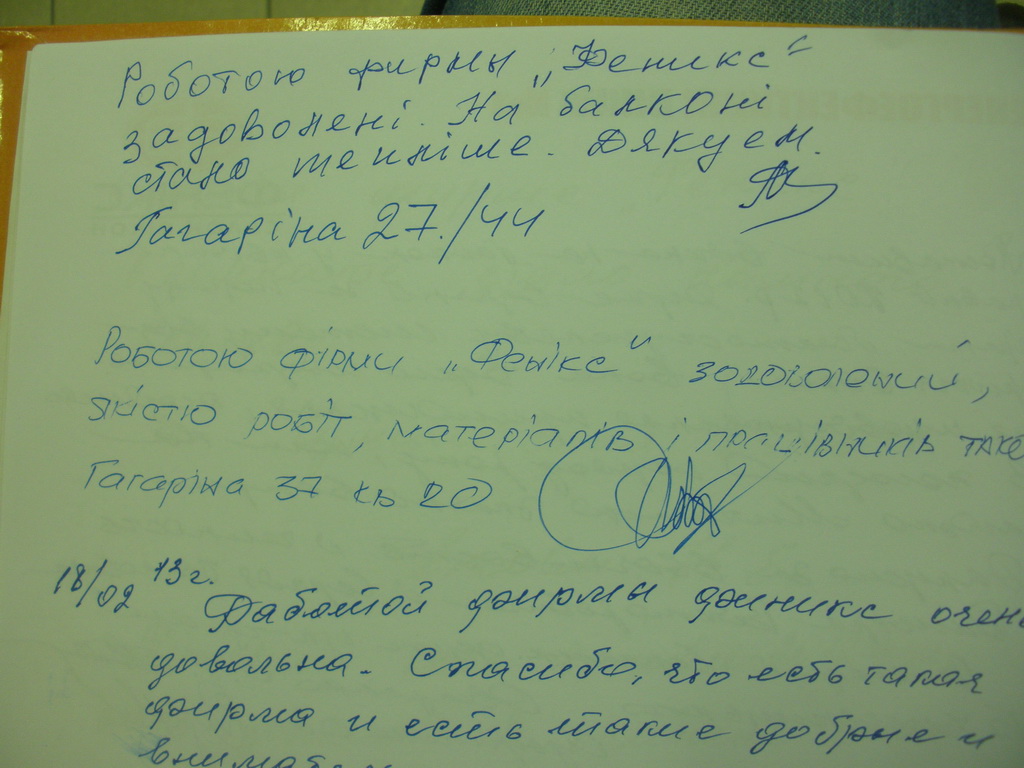 Роботою фирмы „Феникс“
задоволені. На балконі
стало тепліше. Дякуем.
Гагаріна 27./44
Роботою фірми „Фенікс“ задоволений,
якістю робіт, матеріалів і працівників також
Гагаріна 37 кв 20
18/02 13г.
Работой фирмы финикс очень
довальна. Спасибо, что есть такая
фирма и есть такие добрые и